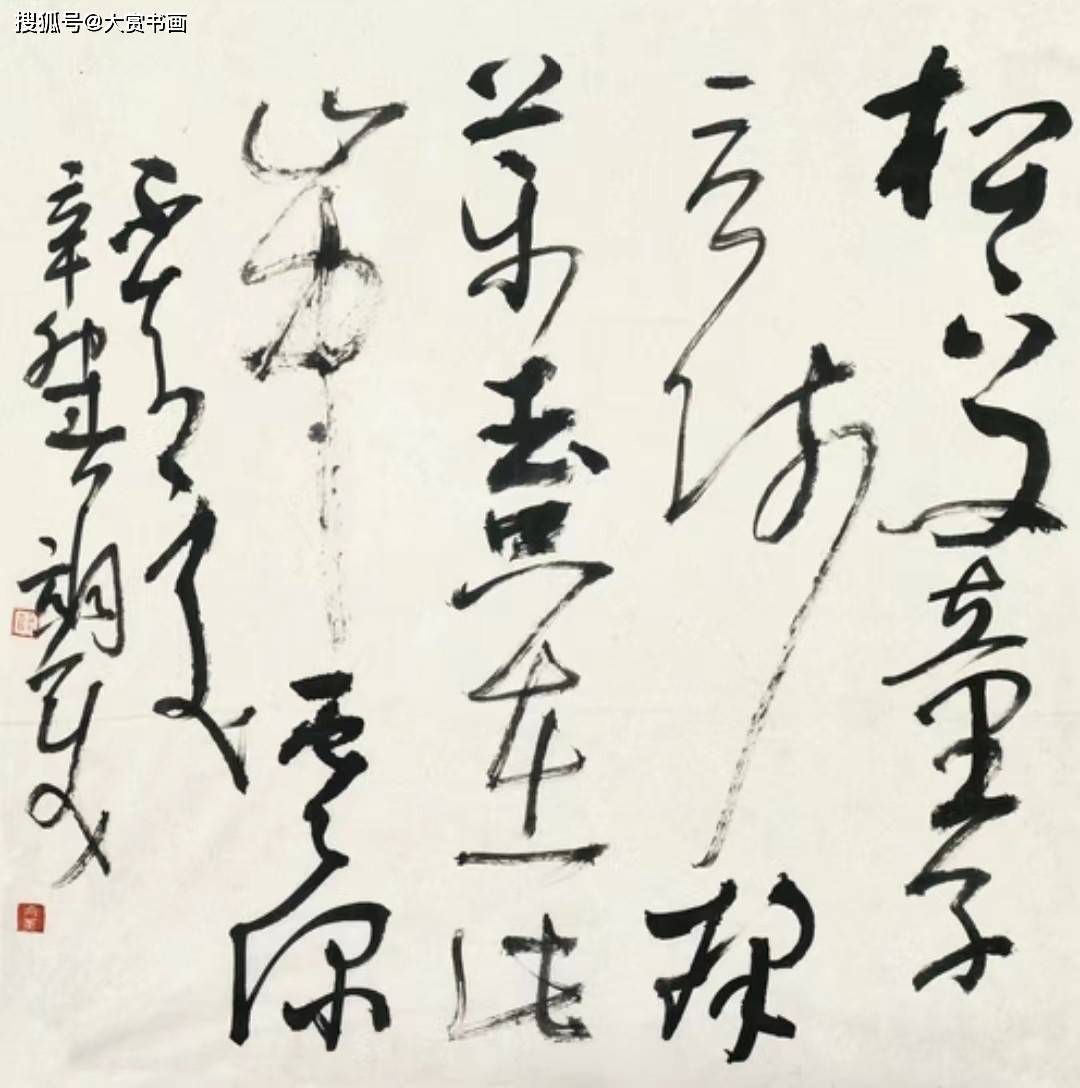 搜狐号@大赏书画
松下问童子
言师采
药去只在此
山中云深
不知处
辛 胡抗美